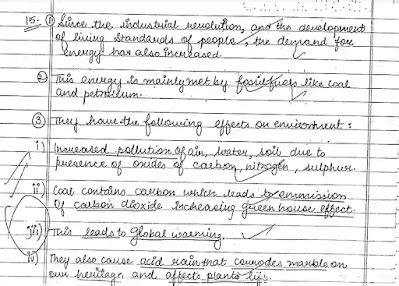 15- ① Since the industrial revolution, and the development
of living standards of people, the demand for
energy has also increased.
② This energy is mainly met by fossil fuels like coal
and petroleum.
③ They have the following effects on environment :
i) Increased pollution of air, water, soil due to
presence of oxides of carbon, nitrogen, sulphur.
ii Coal contains carbon which leads to emmission
of carbon dioxide increasing green house effect.
iii) This leads to Global warming.
iv) They also cause acid rain that corrodes marble on
our heritage and affects plants life.